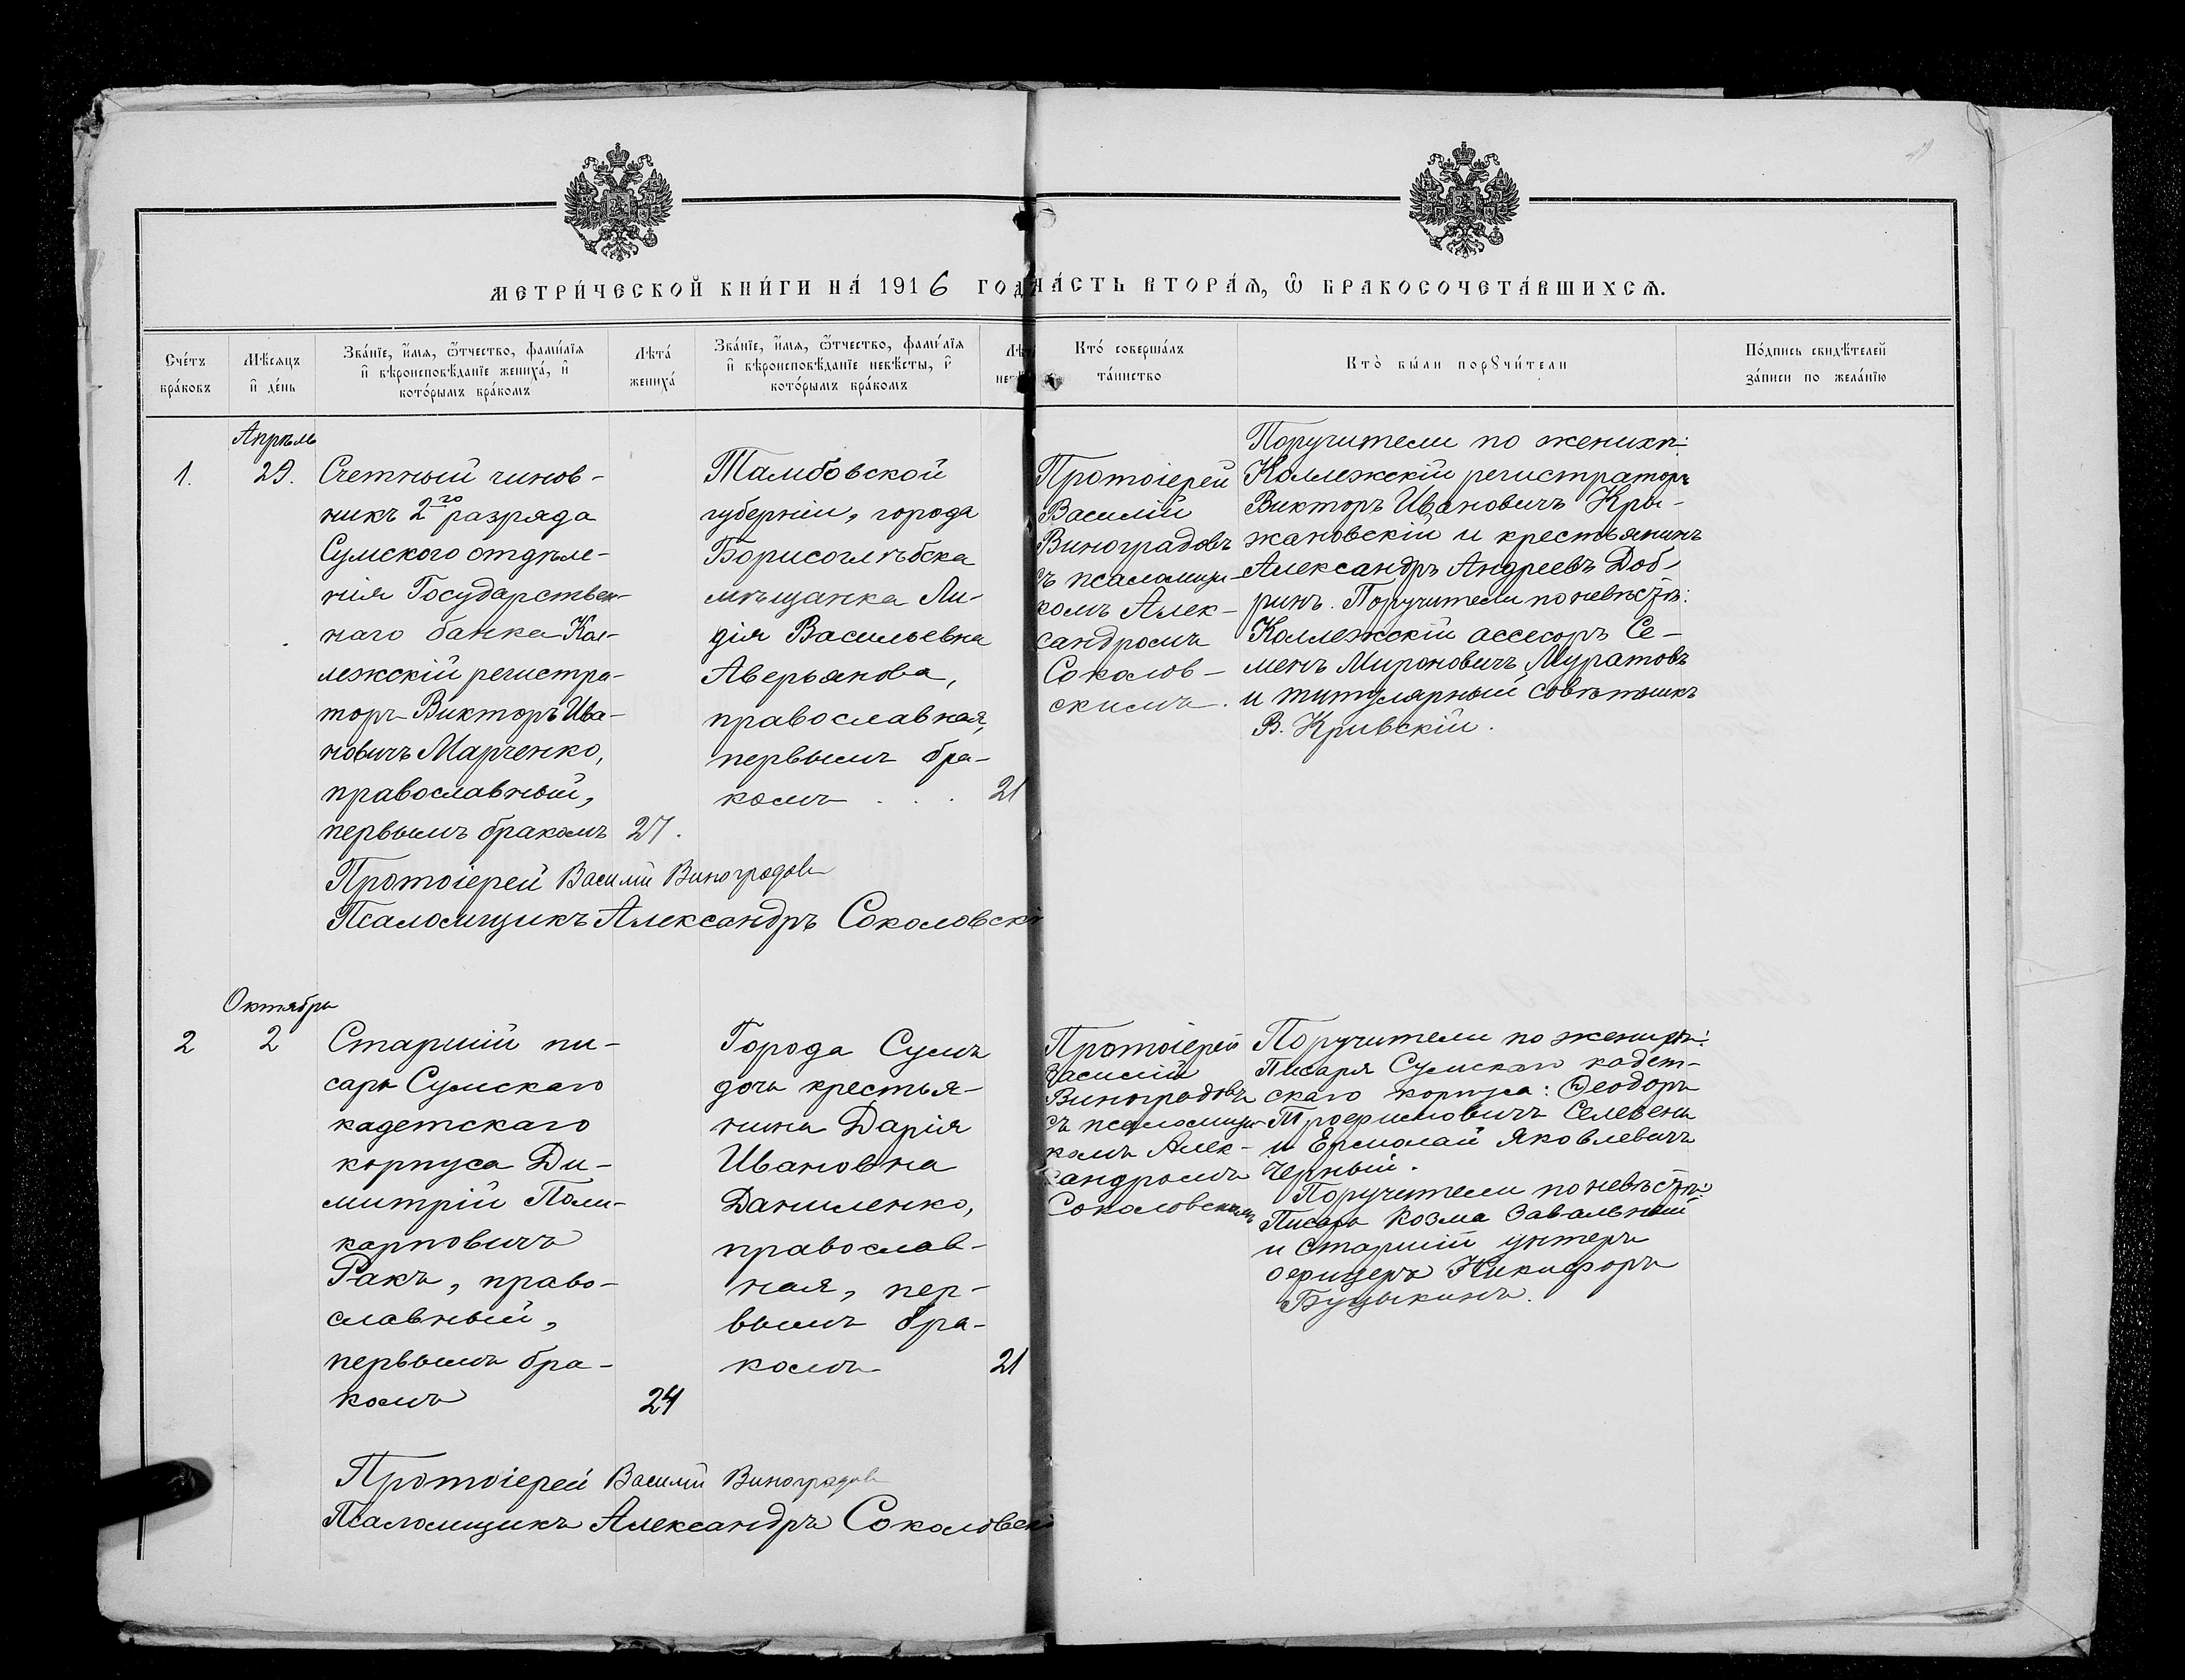 МЕТРИ́ЧЕСКОЙ КНИ́ГИ НА́ 1916 ГОД
ЧА́СТЬ ВТОРА́Я, Ѡ҆ БРАКОСОЧЕТА́ВШИХСЯ.
Сче́тъ
бра́ковъ
Мѣ́сяцъ
и҆ де́нь
Зва́нїе, и҆́мя, ѻ҆́тчество, фами́лїя
и҆ вѣроисповѣ́данїе жениха́, и҆
кото́рымъ бра́комъ
Лѣта́
жениха́
Зва́нїе, и҆́мя, ѻ҆́тчество, фами́лїя
и҆ вѣроисповѣ́данїе невѣ́сты, и҆
кото́рымъ бра́комъ
Кто̀ соверша́лъ
та́инство
Кто̀ бы́ли порꙋчи́тели
По́дпись свидѣ́телей
за́писи по жела́нїю
Апрѣль
1.
29.
Счетный чинов-
никъ 2го разряда
Сумского отдѣле-
нія Государствен-
наго банка Кол-
лежскій регистра-
торъ Викторъ Ива-
новичъ Марченко,
православный,
первымъ бракомъ
27.
Тамбовской
губерніи, города
Борисоглѣбска
мѣщанка Ли-
дія Васильевна
Аверьянова,
православная,
первымъ бра-
комъ . . .
21
Протоіерей
Василій
Виноградовъ
съ псаломщи-
комъ Алек-
сандромъ
Соколов-
скимъ.
Поручители по женихѣ:
Коллежскій регистраторъ
Викторъ Ивановичъ Кры-
жановскій и крестьянинъ
Александръ Андреевъ Доб-
ринъ. Поручители по невѣстѣ:
Коллежскій ассесоръ Се-
менъ Мироновичъ Муратовъ
и титулярный совѣтникъ
В. Кривскій.
Протоіерей Василій Виноградовъ
Псаломщикъ Александръ Соколовскі
Октябрь
2
2
Старшій пи-
сарь Сумскаго
кадетскаго
корпуса Ди-
митрій Поли-
карповичъ
Ракъ, право-
славный,
первымъ бра-
комъ
24
Города Сумъ
дочь крестья-
нина Дарія
Ивановна
Даниленко,
православ-
ная, пер-
вымъ бра-
комъ
21
Протоіерей
Василій
Виноградовъ
съ псаломщи-
комъ Алек-
сандромъ
Соколовскимъ
Поручители по женихѣ:
Писаря Сумскаго кадет-
скаго корпуса: Ѳеодоръ
Трофимовичъ Селевень
и Ермолай Яковлевичъ
Черный.
Поручители по невѣстѣ:
Писарь Козма Завальный
и старшій унтеръ
офицеръ Никифоръ
Буцыкинъ.
Протоіерей Василій Виноградовъ
Псаломщикъ Александръ Соколовскі